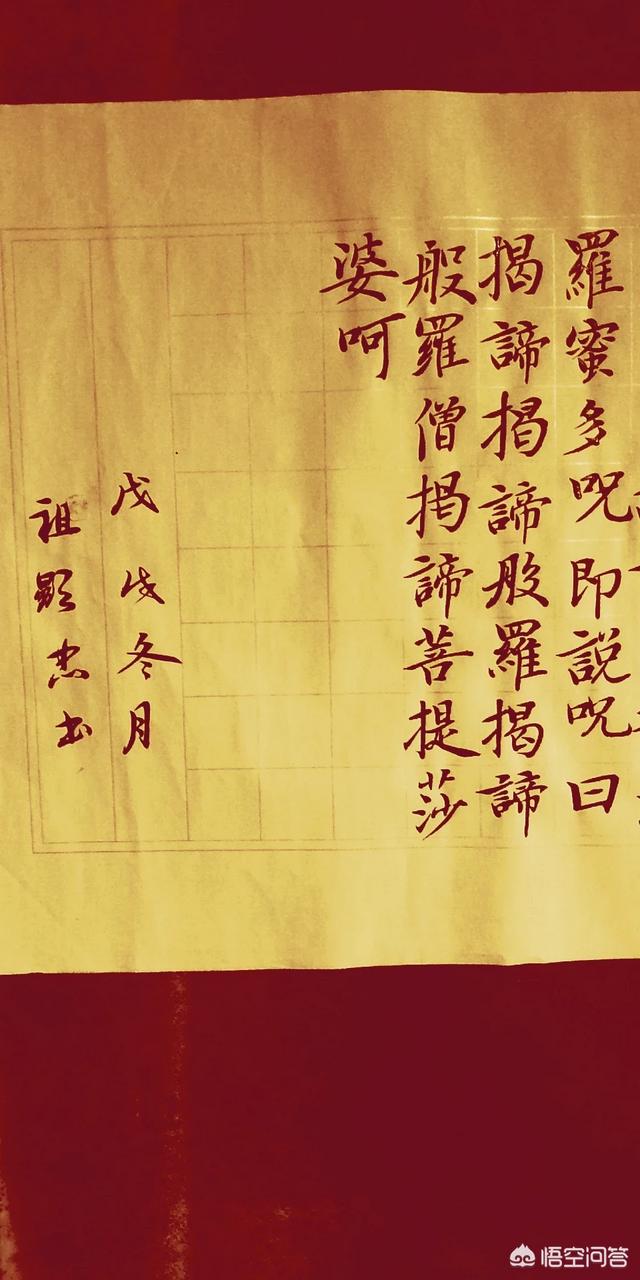 羅蜜多呪即說呪曰
揭諦揭諦般羅揭諦
般羅僧揭諦菩提莎
婆呵
戊戌冬月
祖顯忠書
悟空问答